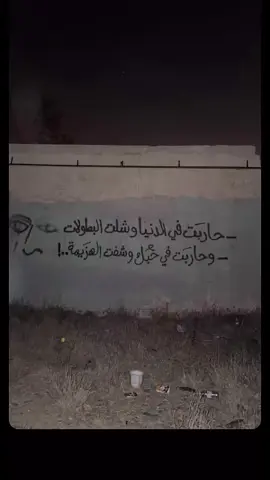 ـ حاربت في الدنيا وشلت البطولات
ـ وحاربت في حُبك وشفت الهزيمة..!